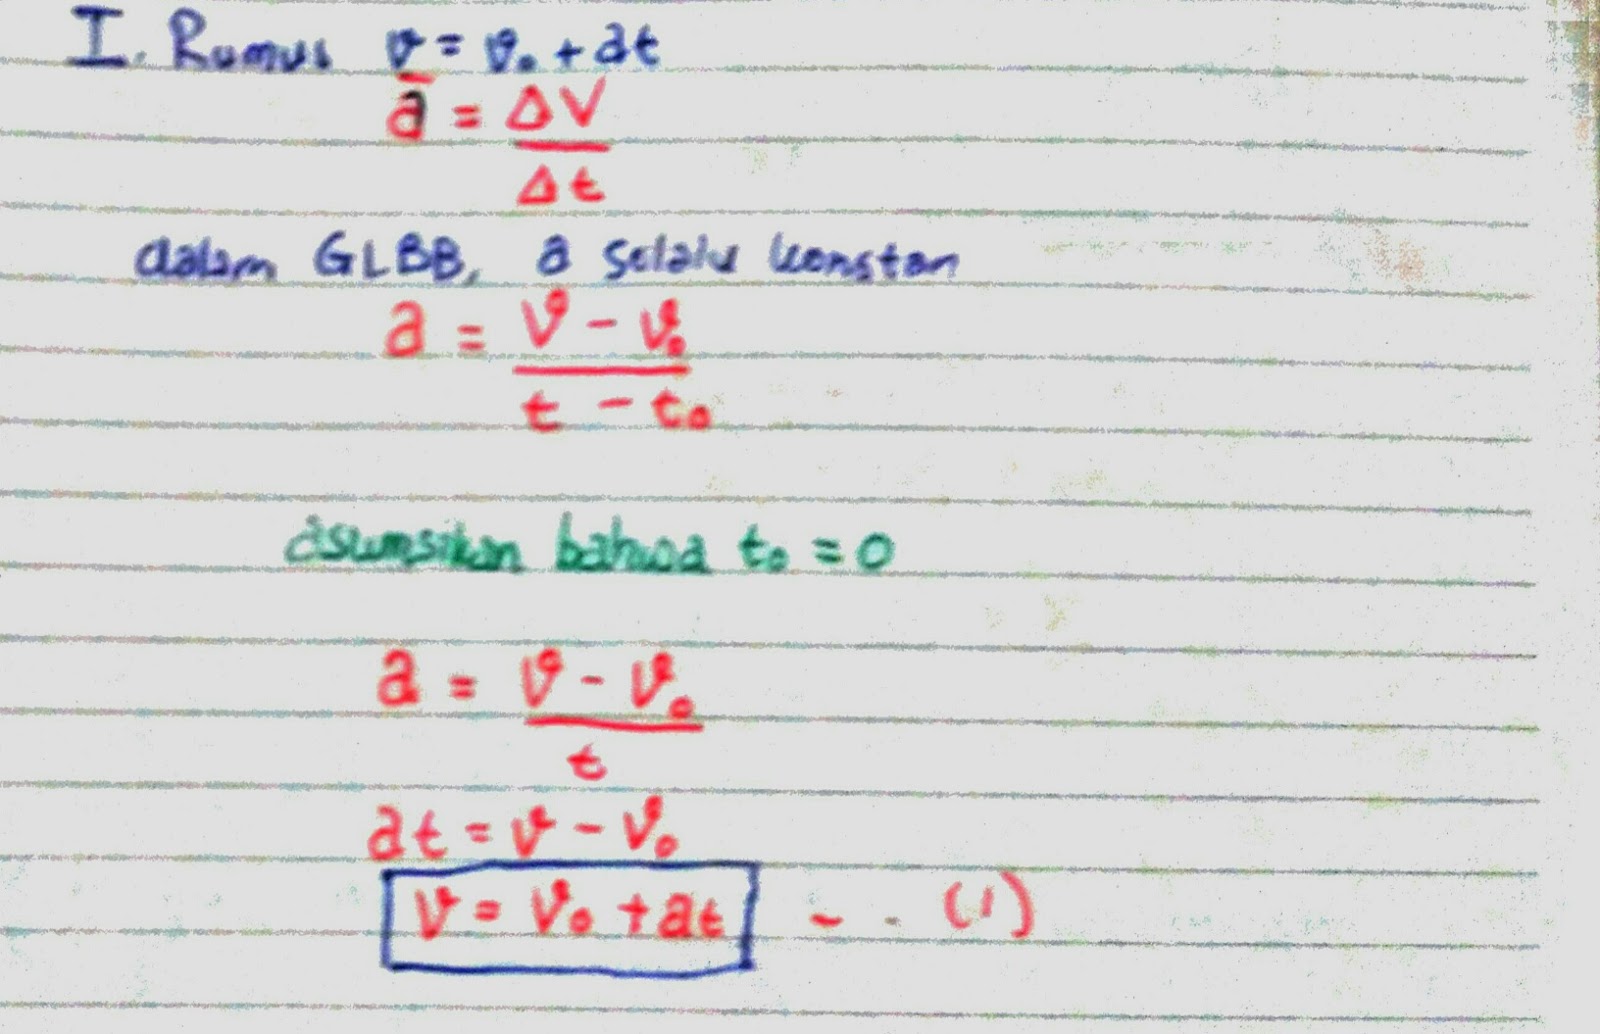 I. Rumus v = v₀ + at
ā = ΔV / Δt
dalam GLBB, a selalu konstan
a = v - v₀ / t - t₀
asumsikan bahwa t₀ = 0
a = v - v₀ / t
at = v - v₀
v = v₀ + at - - (1)